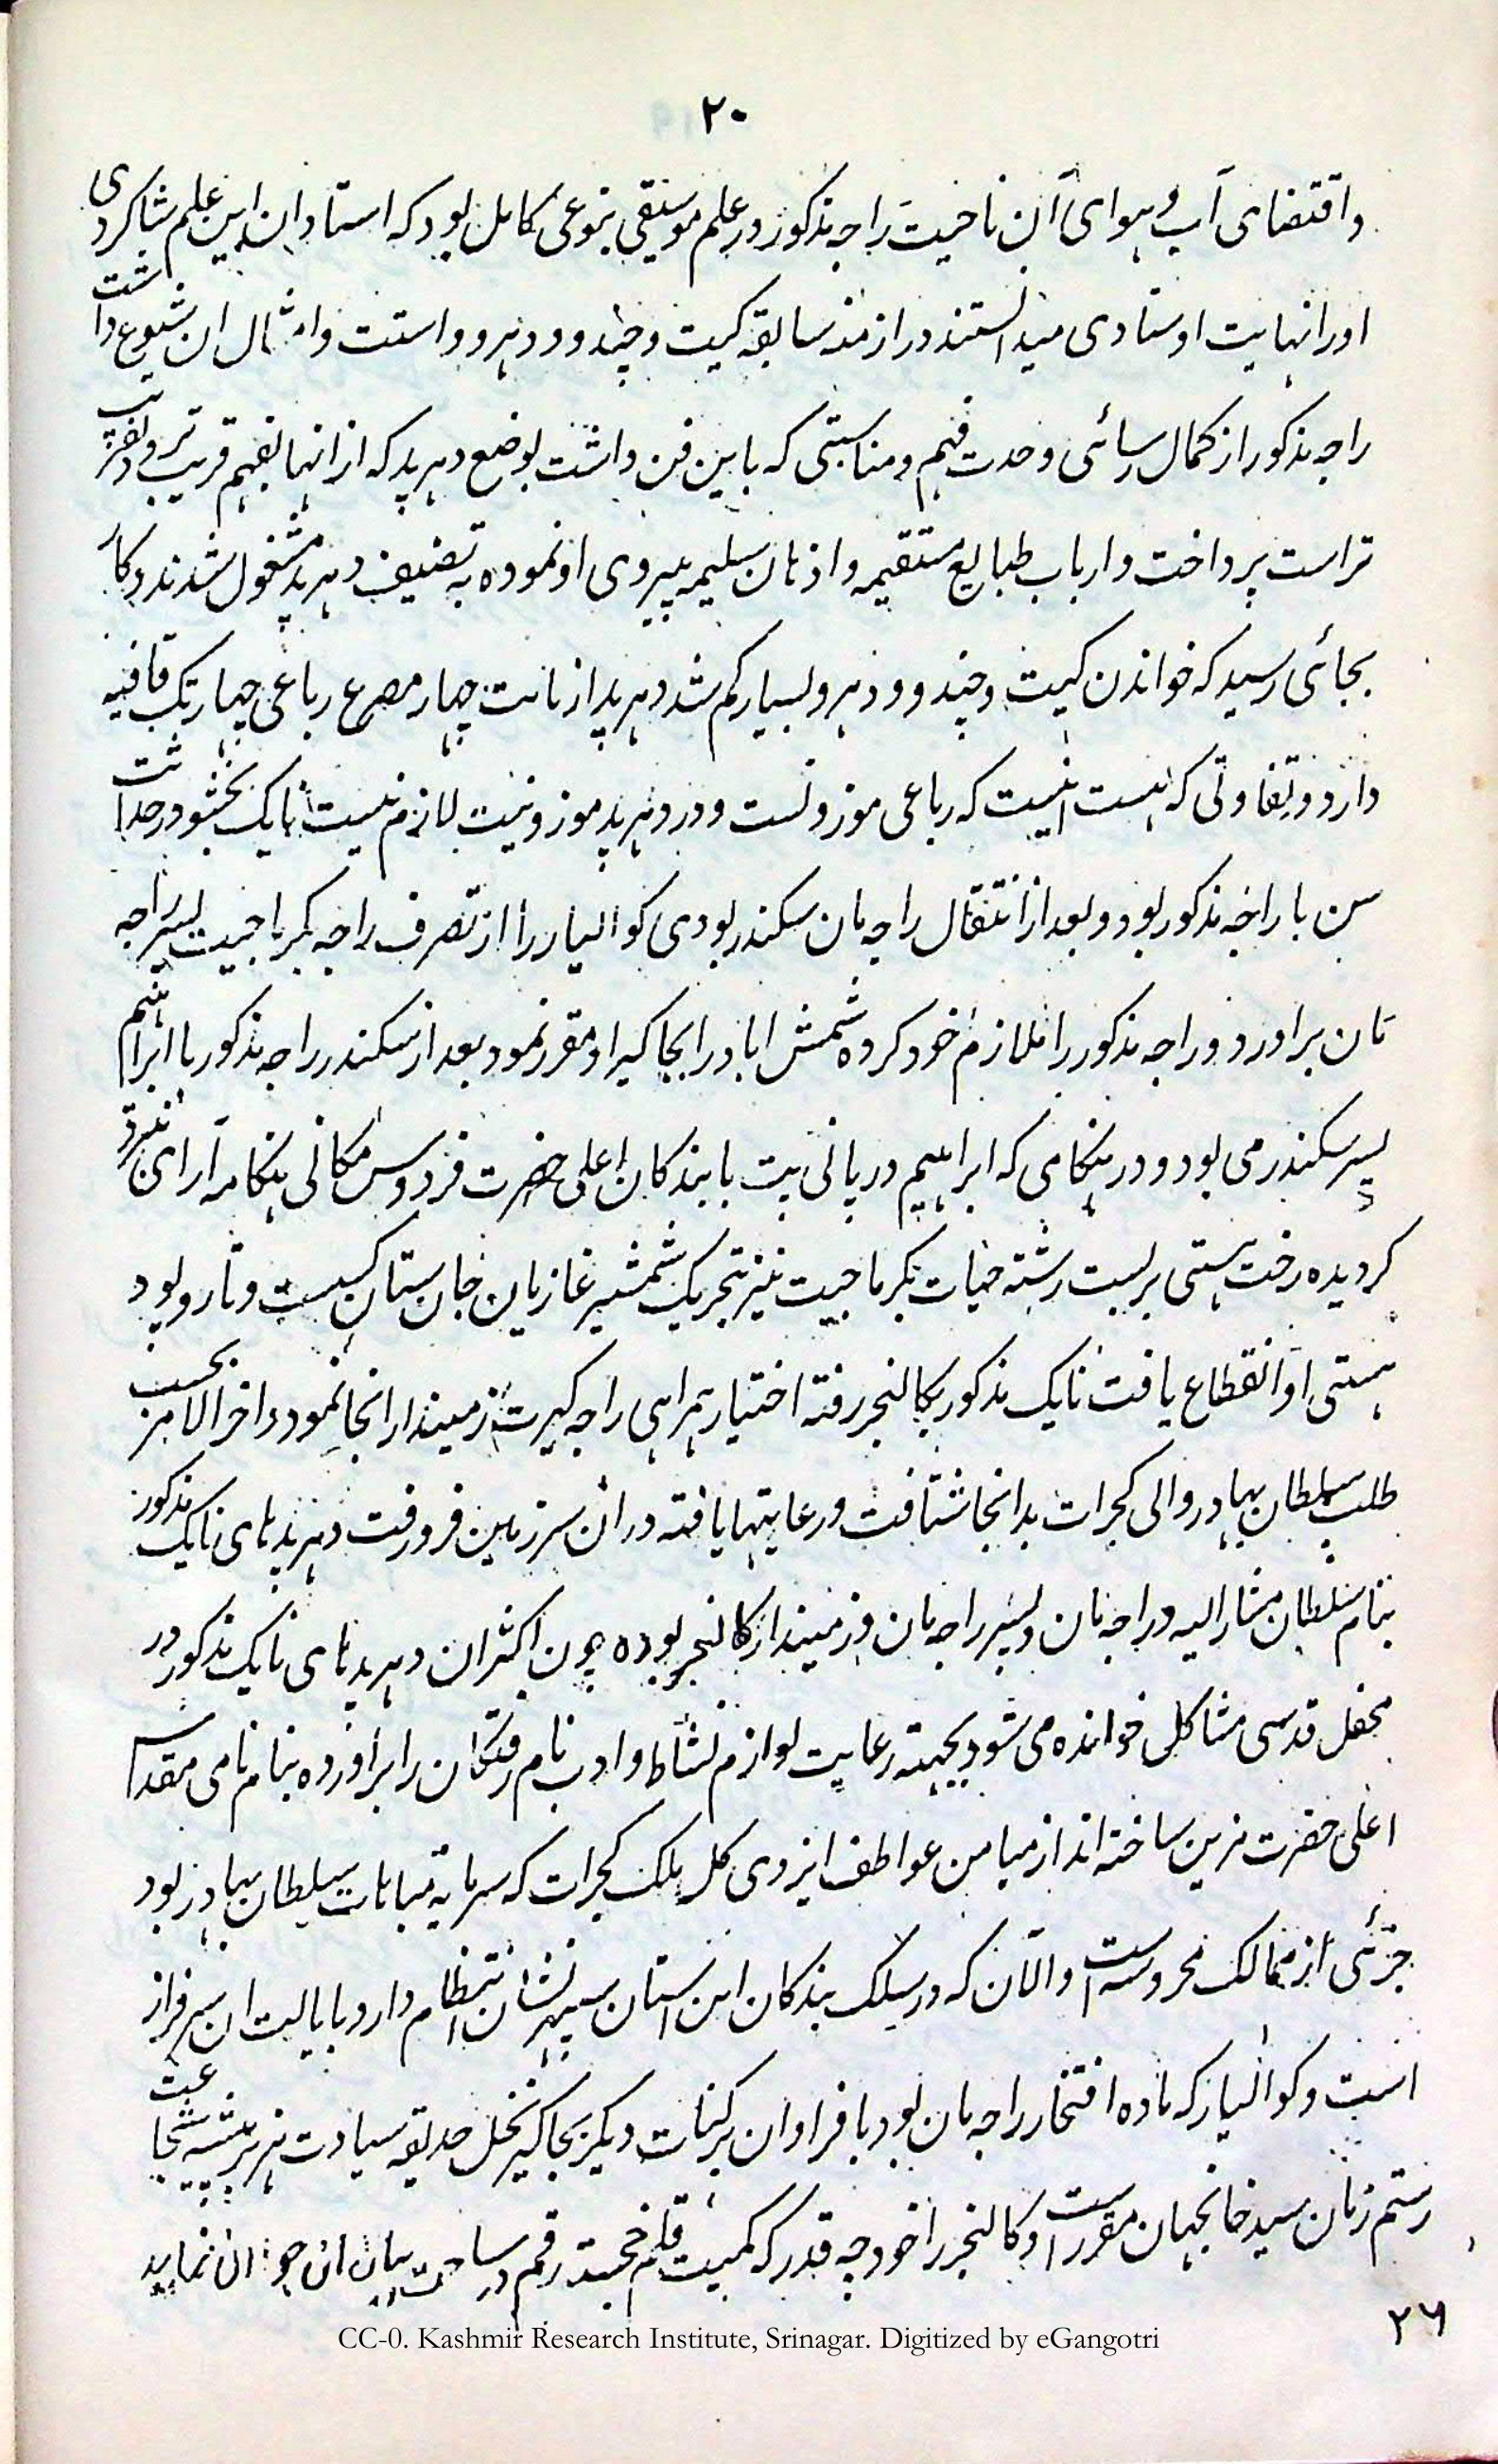 ۲۰
واقتضای آب وہوای آن ناحیت راجہ مذکور در علم موسیقی بنوعی کامل بود کہ استادان این علم شاکردی
اورا نہایت اوستادی میدانستند در ازمنہ سابقہ کیت وچند ودہرو واستت وامثال ان شیوع داشت
راجہ مذکور از کمال رسائی وحدت فہم ومناسبتی کہ باین فن داشت بوضع دہرپد کہ از انہا بفہم قریب تر و
تراست پرداخت وارباب طبایع مستقیمہ واذہان سلیمہ پیروی او نمودہ بہ تصنیف دہرپد مشغول شدند وکار
بجائی رسید کہ خواندن کیت وچند ودہرو بسیار کم شد دہرپد از بابت چہار مصرع رباعی چہار تک قافیہ
دارد وتفاوتی کہ ہست اینست کہ رباعی موزونست ودر دہرپد موزونیت لازم نیست نایک بخشو در حداثت
سن با راجہ مذکور بود وبعد از انتقال راجہ مان سکندر لودی کوالیار را از تصرف راجہ بکرماجیت پسر راجہ
مان براورد وراجہ مذکور را ملازم خود کردہ شمش اباد را بجاکیر او مقرر نمود بعد از سکندر راجہ مذکور با ابراہیم
پسر سکندر می بود ودر ہنکامی کہ ابراہیم در پانی پت با بندکان اعلی حضرت فردوس مکانی ہنکامہ آرای نبرد
کردیدہ رخت ہستی بربست رشتہ حیات بکرماجیت نیز بتحریک شمشیر غازیان جان ستان کسیست وتار وپود
ہستی او انقطاع یافت نایک مذکور بکالنجر رفتہ اختیار ہمراہی راجہ کیرت زمیندار انجا نمود واخر الامر بحسب
طلب سلطان بہادر والی کجرات بدانجا شتافت ورعایتہا یافتہ در ان سرزمین فرورفت دہرپدہای نایک مذکور
بنام سلطان مشارالیہ وراجہ مان وپسر راجہ مان وزمیندار کالنجر بودہ چون اکثران دہرپدہای نایک مذکور در
محفل قدسی مشاکل خواندہ می شود بجہتہ رعایت لوازم نشاط وادب نام رفتکان را براوردہ بنام نامی مقدس
اعلی حضرت مزین ساختہ اند از میامن عواطف ایزدی کل ملک کجرات کہ سرمایہ مباہات سلطان بہادر بود
جزئی از ممالک محروسہ است والان کہ در سلک بندکان این استان سپہر نشان انتظام دارد بایالت ان سرفراز
است وکوالیار کہ مادہ افتخار راجہ مان بود با فراوان پرکنات دیکر بجاکیر نخل حدیقہ سیادت ہزبر بیشہ شجاعت
رستم زمان سید خانجہان مقرر است وکالنجر را خود چہ قدر کہ کمیت قلم خجستہ رقم در ساحت بیان ان جولان نماید
۲۶
CC-0. Kashmir Research Institute, Srinagar. Digitized by eGangotri